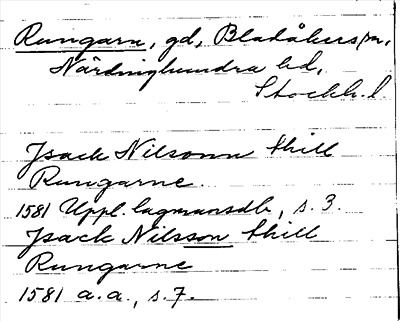 Rungarn, gd, Bladåkers sn,
Närdinghundra hd,
Stockh. l.
Jsack Nilsonn thill
Rungarne.
1581 Uppl. lagmansdb, s. 3.
Jsack Nilsson thill
Rungarne
1581 a.a., s. 7.